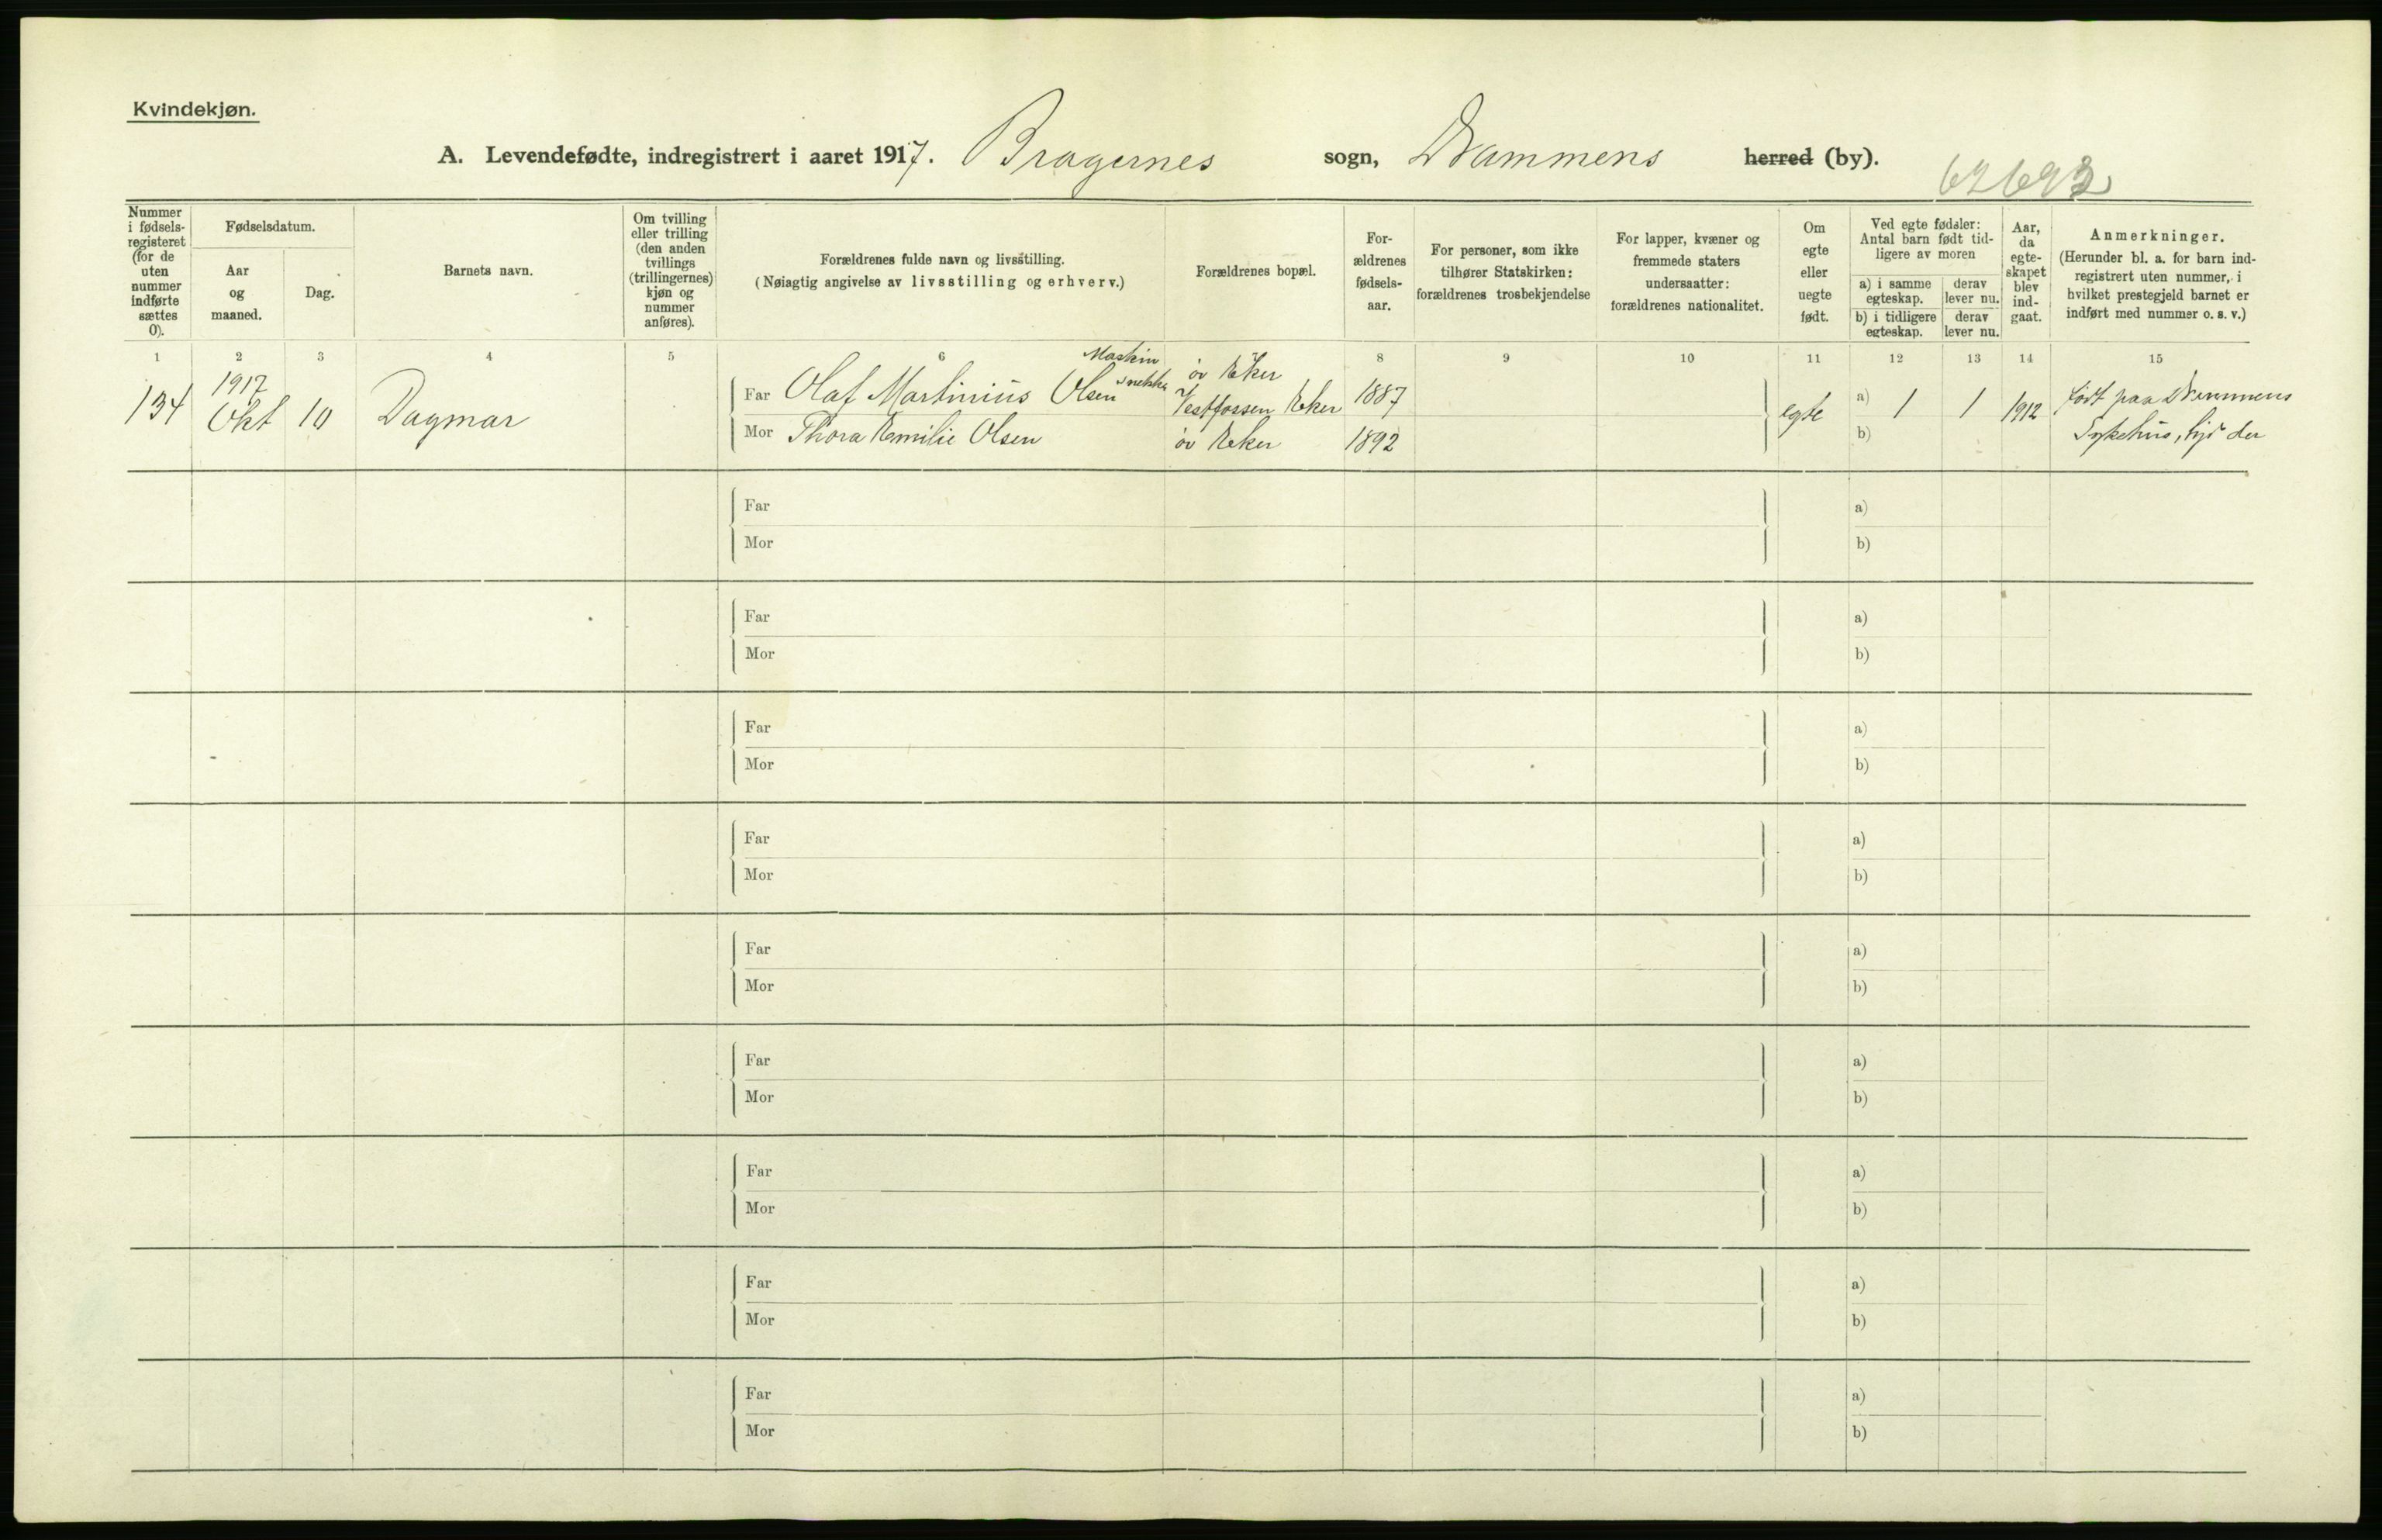 Kvindekjøn.
A. Levendefødte, indregistrert i aaret 1917. Bragernes sogn, Drammens herred (by).
Nummer i fødsels-registeret (for de uten nummer indførte sættes 0).
Fødselsdatum.
Aar og maaned.
Dag.
Barnets navn.
Om tvilling eller trilling (den anden tvillings (trillingernes) kjøn og nummer anføres).
Forældrenes fulde navn og livsstilling.
(Nøiagtig angivelse av livsstilling og erhverv.)
Forældrenes bopæl.
For-ældrenes fødsels-aar.
For personer, som ikke tilhører Statskirken: forældrenes trosbekjendelse
For lapper, kvæner og fremmede staters undersaatter: forældrenes nationalitet.
Om egte eller uegte født.
Ved egte fødsler: Antal barn født tid-ligere av moren
a) i samme egteskap.
derav lever nu.
b) i tidligere egteskap.
derav lever nu.
Aar, da egte-skapet blev ind-gaat.
Anmerkninger.
(Herunder bl. a. for barn ind-registrert uten nummer, i hvilket prestegjeld barnet er indført med nummer o. s. v.)
1 2 3 4 5 6 8 9 10 11 12 13 14 15
134
1917
Okt 10
Dagmar
Far Olaf Martinius Olsen Maskin
snekker
Mor Thora Emilie Olsen
öv Eker
Vestfossen Eker
öv Eker
1887
1892
egte
a) 1 1
b)
1912
født paa Drammens
Sykehus, hj. der
Far a)
Mor b)
Far a)
Mor b)
Far a)
Mor b)
Far a)
Mor b)
Far a)
Mor b)
Far a)
Mor b)
Far a)
Mor b)
Far a)
Mor b)
Far a)
Mor b)